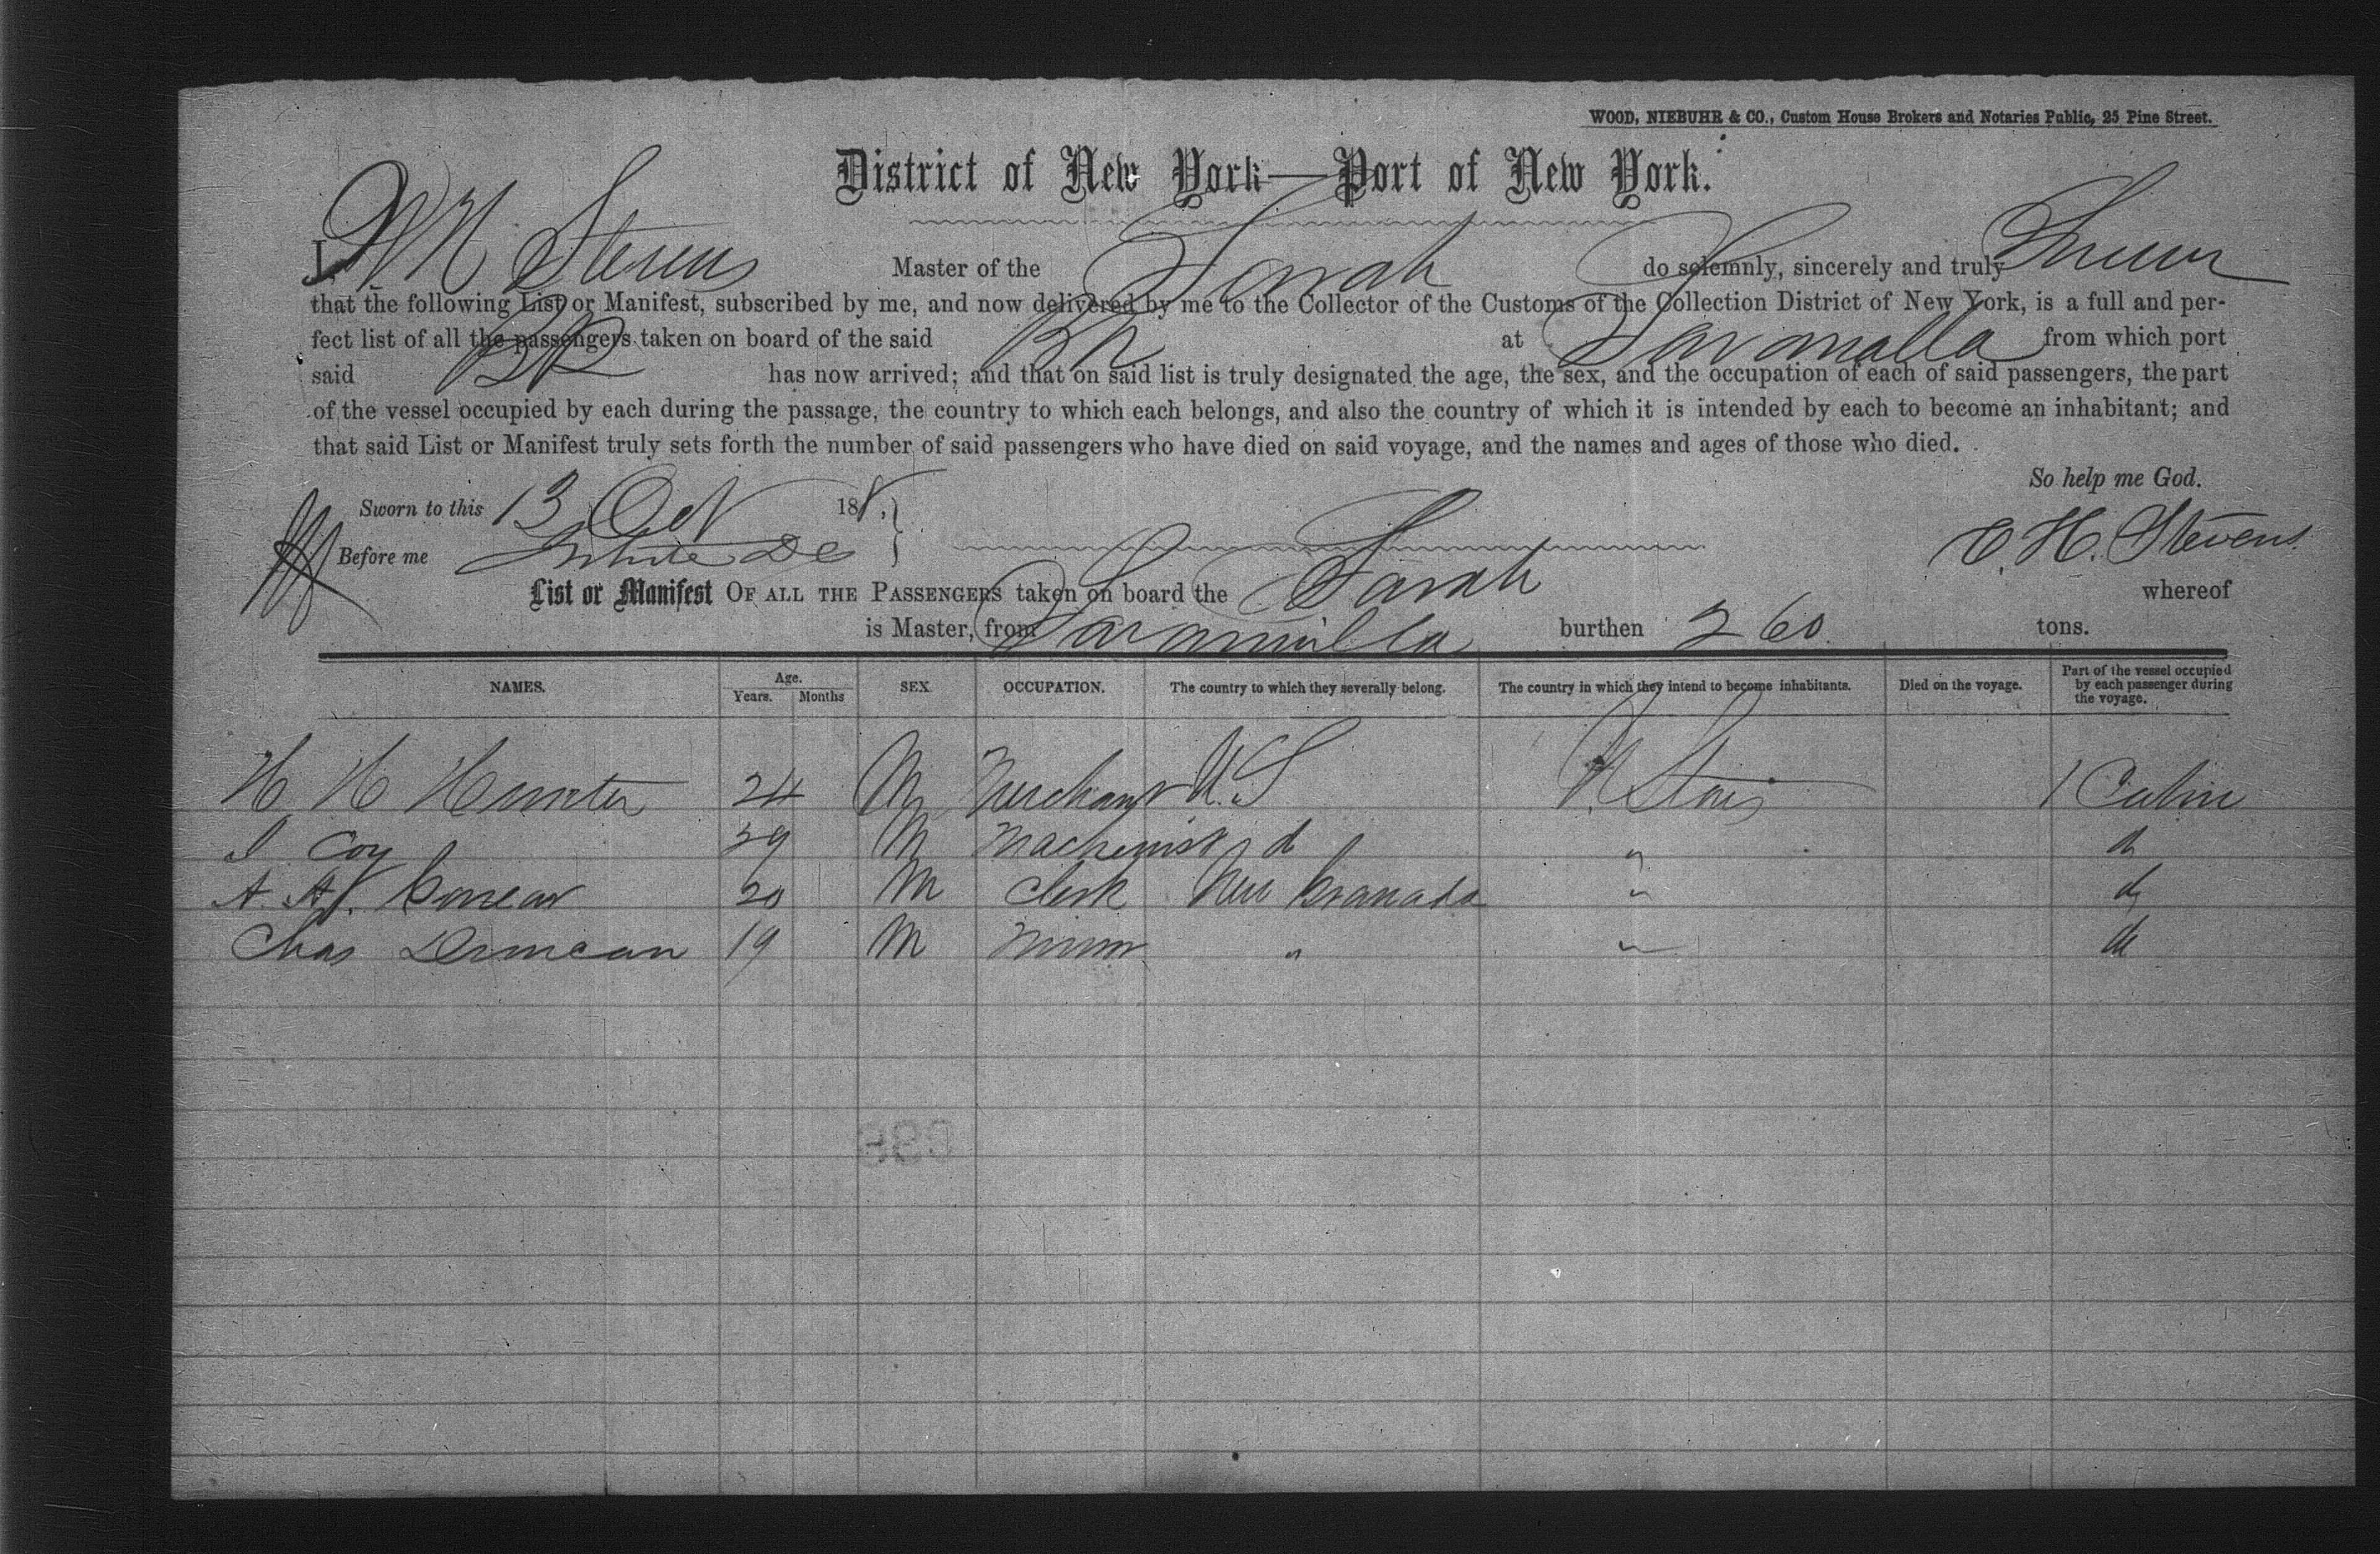 WOOD, NIEBUHR & CO., Custom House Brokers and Notaries Public, 25 Pine Street.
District of New York—Port of New York.
I, Stevens Master of the Sarah do solemnly, sincerely and truly Swear
that the following List or Manifest, subscribed by me, and now delivered by me to the Collector of the Customs of the Collection District of New York, is a full and per-
fect list of all the passengers taken on board of the said Bk at Savanilla from which port
said Bk has now arrived; and that on said list is truly designated the age, the sex, and the occupation of each of said passengers, the part
of the vessel occupied by each during the passage, the country to which each belongs, and also the country of which it is intended by each to become an inhabitant; and
that said List or Manifest truly sets forth the number of said passengers who have died on said voyage, and the names and ages of those who died.
So help me God.
Sworn to this 13 Oct 188
Before me
C. H. Stevens
List or Manifest OF ALL THE PASSENGERS taken on board the Sarah whereof
is Master, from Savanilla burthen 260 tons.
NAMES. Age. Years. Months SEX. OCCUPATION. The country to which they severally belong. The country in which they intend to become inhabitants. Died on the voyage. Part of the vessel occupied by each passenger during the voyage.
H H Hunter 24 M Merchant U.S U States 1 Cabin
J Coy 39 M Machinist d " do
A. A. 20 M Clerk New Granada " do
Chas Duncan 19 M " " do